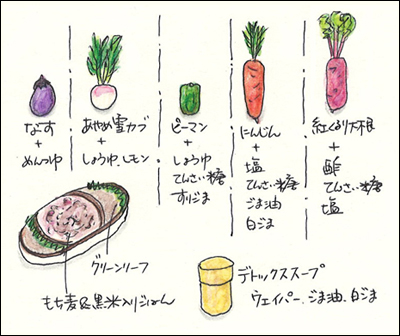 なす
+
めんつゆ
あやめ雪カブ
+
しょうゆ、レモン
ピーマン
+
しょうゆ
てんさい糖
すりごま
にんじん
+
塩
てんさい糖
ごま油
白ごま
紅くるり大根
+
酢
てんさい糖
塩
グリーンリーフ
もち麦&黒米入りごはん
デトックススープ
ウェイパー、ごま油、白ごま